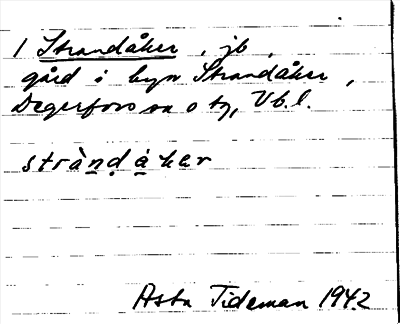 1 Strandåker, jb,
gård i byn Strandåker,
Degerfors sn o tg, Vb.l.
stràndåker
Asta Tideman 1942